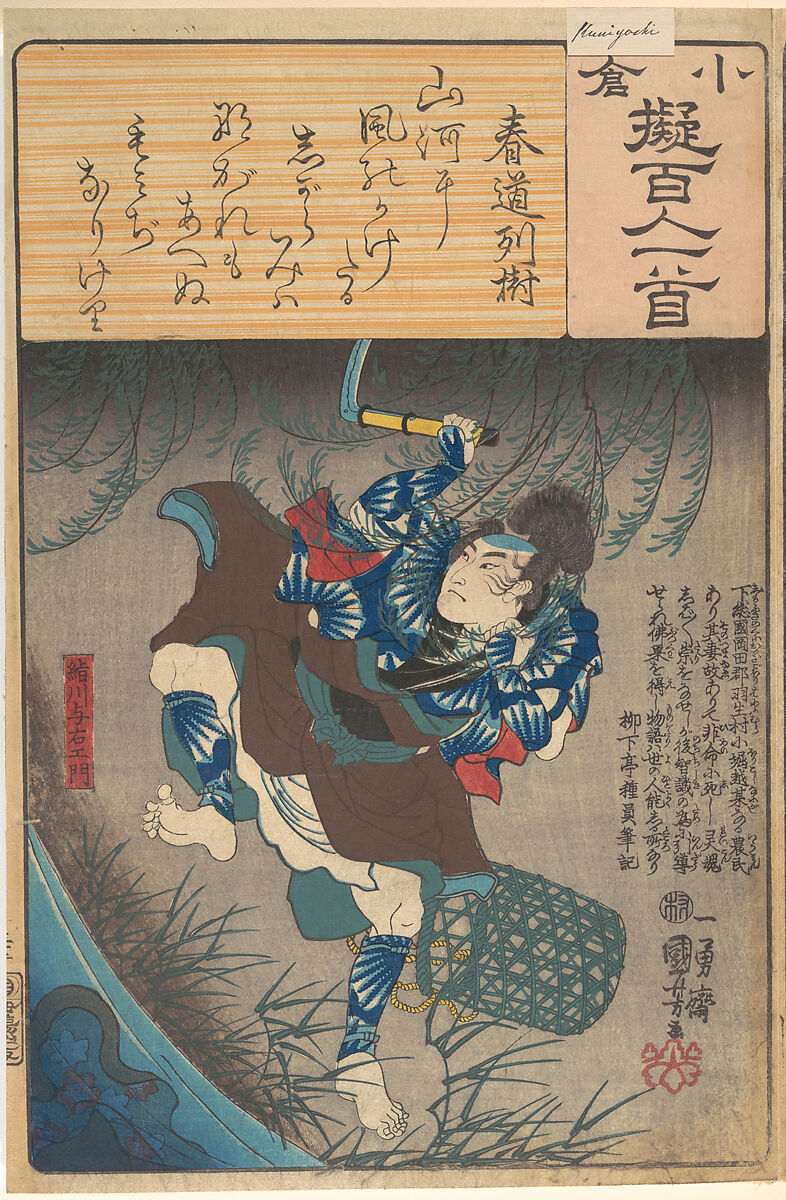 Kuniyoshi
小倉
擬百人一首
春道列樹
山河耳
風能かけ
たる
志がらみハ
那がれも
あへぬ
もみぢ
なりけり
下総國岡田郡羽生村小堀越某なる農民
あり其妻故ありて非命に死し灵魂
しば〱祟をなせしが後智識の為に引導
せられ佛果を得し物語ハ世の人能しる所なり
柳下亭種員筆記
絹川与右エ門
一勇齋
國芳画